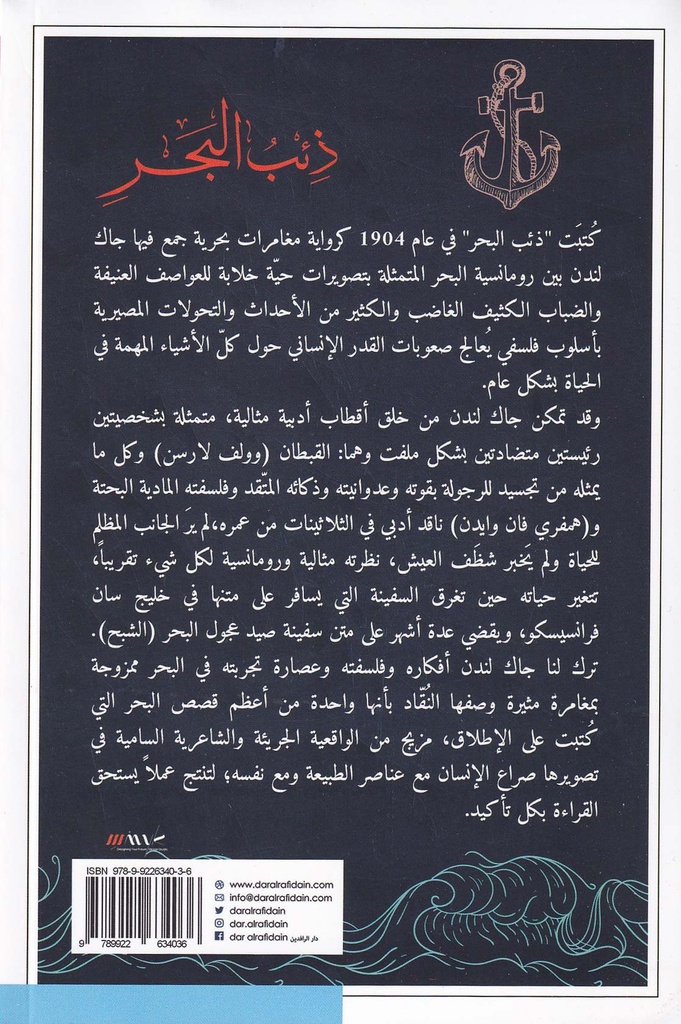 ذِئبُ البَحَرِ
كُتبَت "ذئب البحر" في عام 1904 كرواية مغامرات بحرية جمع فيها جاك
لندن بين رومانسية البحر المتمثلة بتصويرات حيّة خلابة للعواصف العنيفة
والضباب الكثيف الغاضب والكثير من الأحداث والتحولات المصيرية
بأسلوب فلسفي يُعالج صعوبات القدر الإنساني حول كلّ الأشياء المهمة في
الحياة بشكل عام.
وقد تمكن جاك لندن من خلق أقطاب أدبية مثالية، متمثلة بشخصيتين
رئيستين متضادتين بشكل ملفت وهما: القبطان (وولف لارسن) وكل ما
يمثله من تجسيد للرجولة بقوته وعدوانيته وذكائه المتّقد وفلسفته المادية البحتة
و(همفري فان وايدن) ناقد أدبي في الثلاثينات من عمره،لم يرَ الجانب المظلم
للحياة ولم يَخبر شظَف العيش، نظرته مثالية ورومانسية لكل شيء تقريباً،
تتغير حياته حين تغرق السفينة التي يسافر على متنها في خليج سان
فرانسيسكو، ويقضي عدة أشهر على متن سفينة صيد عجول البحر (الشبح).
ترك لنا جاك لندن أفكاره وفلسفته وعصارة تجربته في البحر ممزوجة
بمغامرة مثيرة وصفها النُقّاد بأنها واحدة من أعظم قصص البحر التي
كُتبت على الإطلاق، مزيج من الواقعية الجريئة والشاعرية السامية في
تصويرها صراع الإنسان مع عناصر الطبيعة ومع نفسه؛ لتنتج عملاً يستحق
القراءة بكل تأكيد.
ISBN 978-9-9226340-3-6
9 789922 634036
www.daralrafidain.com
info@daralrafidain.com
daralrafidain
dar.alrafidain
dar alrafidain دار الرافدين